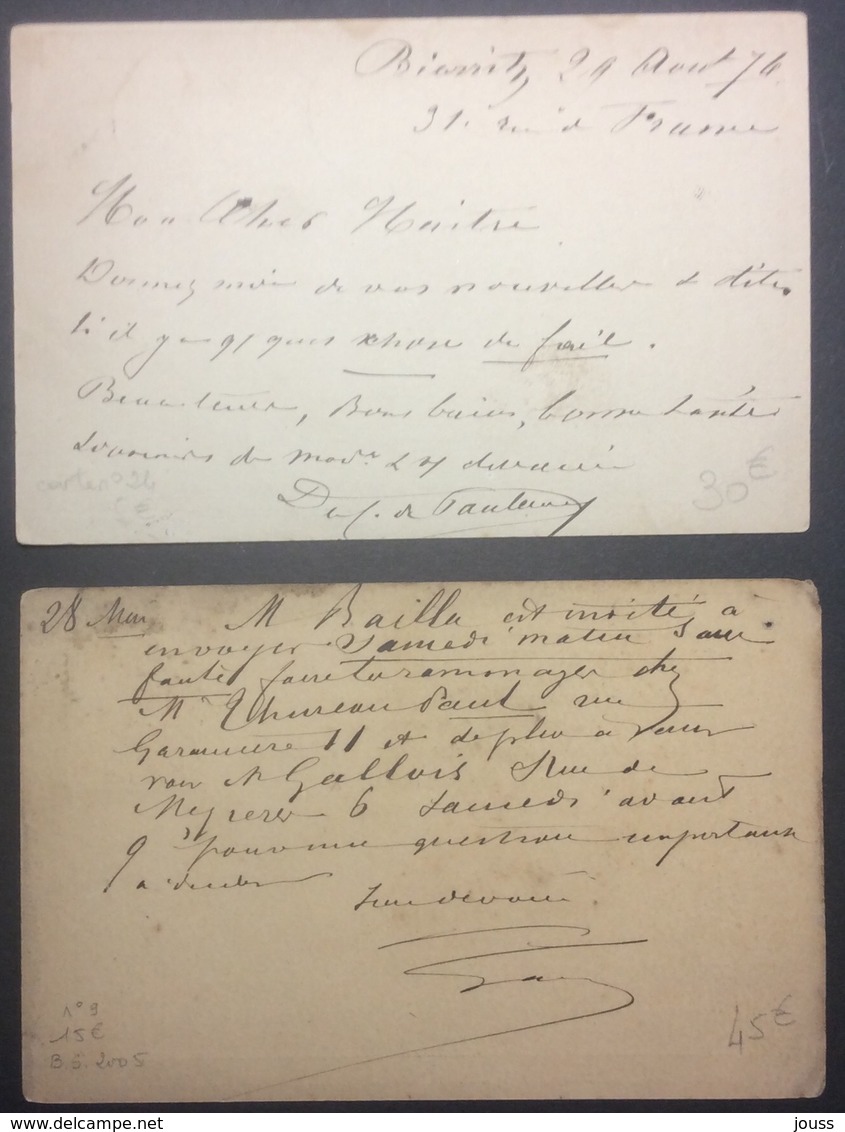 Biarritz 29 Aout 76
31 rue de France
Mon Cher Maitre
Donnez moi de vos nouvelles & dites
s'il y a qq ques chose de fait.
Beau temps, Bons bains, bonne santé
souvenirs de mod.r & dévoué
D de
carte n° 24
6 €
30 €
28 Mars
M Bailla est invité à
envoyer Samedi matin Sans
faute faire ramonager chez
M Thureau Paul rue
Garanciere 11 et de plus a venir
voir M Gallois Rue de
Mezieres 6 Samedi avant
9h pour une question importante
a
Son dévoué
n° 9
15 €
B.S. 2005
45 €
delcampe.net
jouss